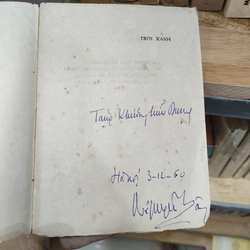 TRỜI XANH
Tặng Khương Hữu Dụng
Hà Nội 3-12-60